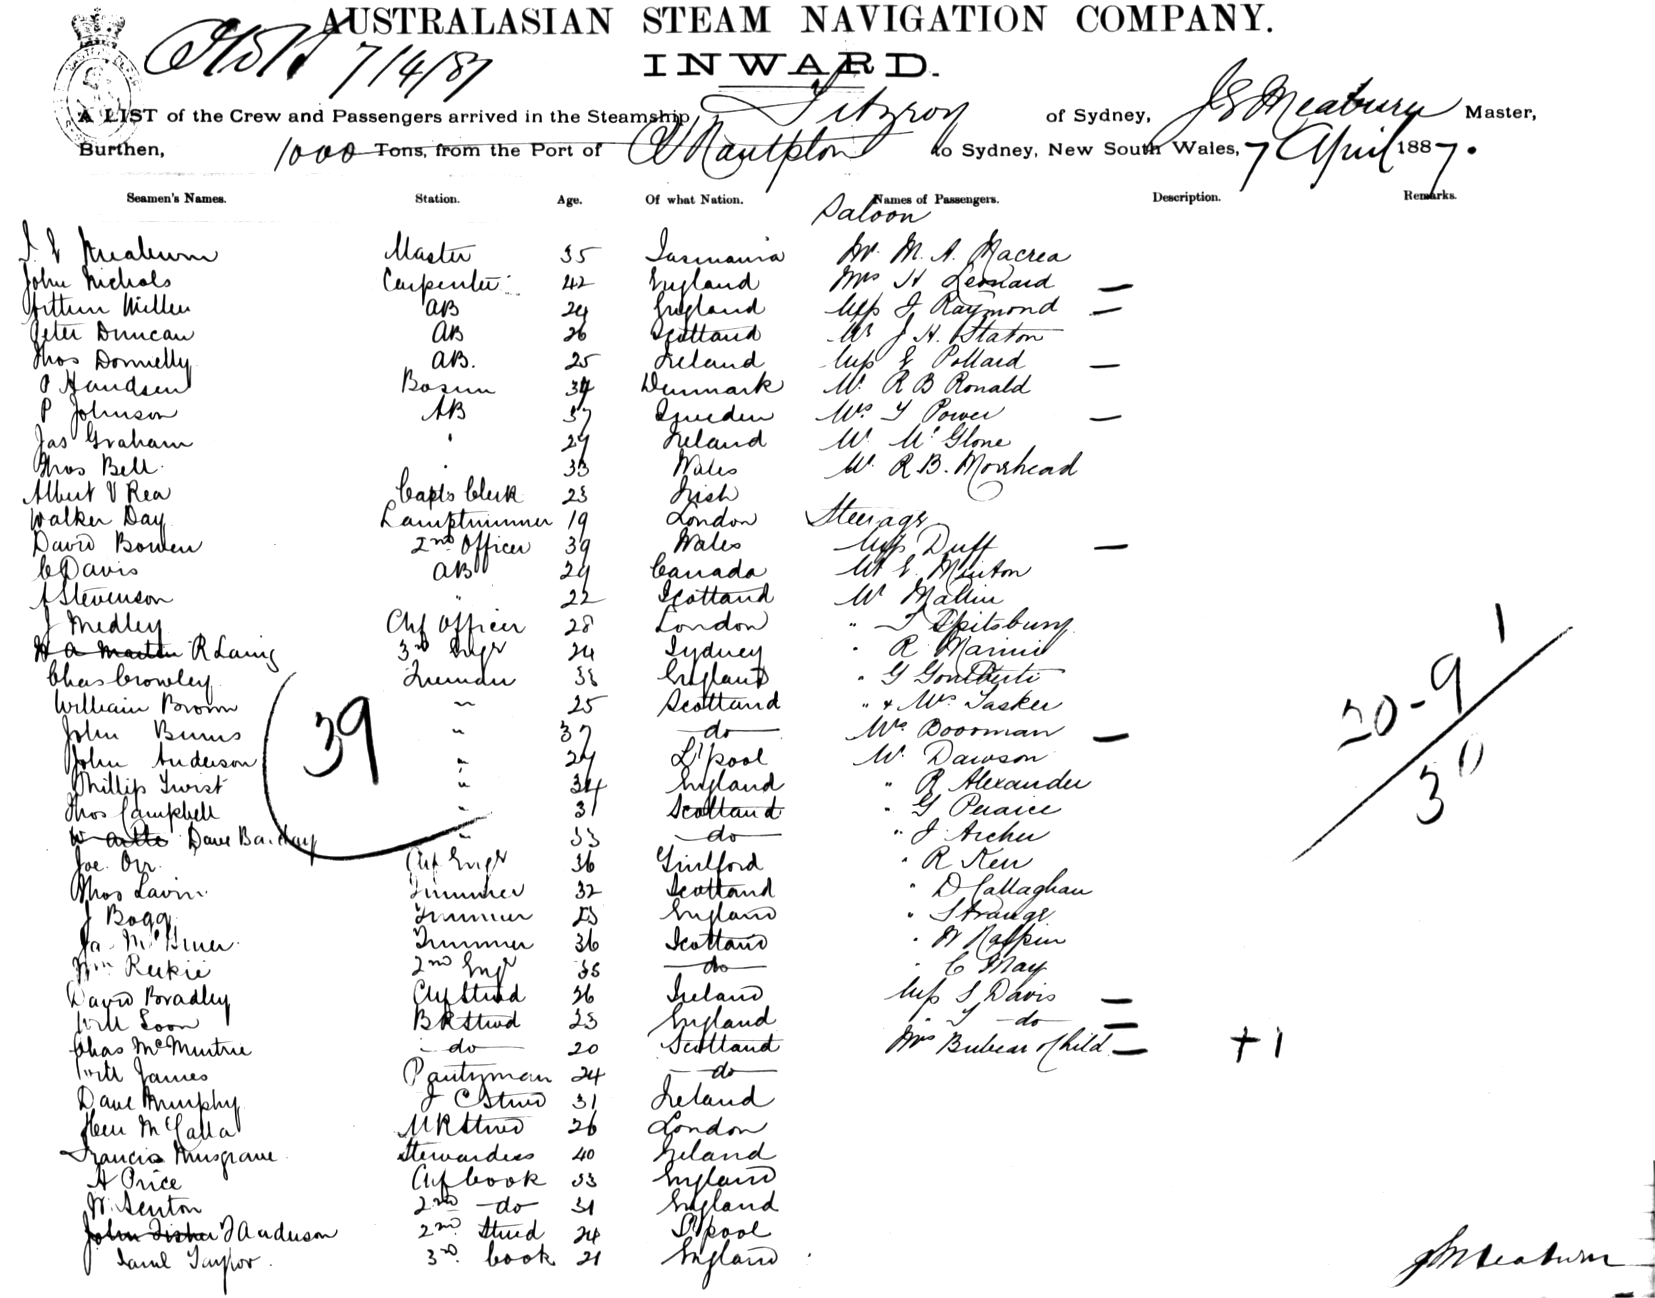 AUSTRALASIAN STEAM NAVIGATION COMPANY.
7/4/87
INWARD.
A LIST of the Crew and Passengers arrived in the Steamship Fitzroy of Sydney, J E Meaburn Master,
Burthen, 1000 Tons, from the Port of to Sydney, New South Wales, 7 April 1887.
Seamen's Names. Station. Age. Of what Nation. Names of Passengers. Description. Remarks.
Saloon
Meaburn Master 35 Tasmania Mr. M. A. Macrea
John Nichols Carpenter 42 England Mrs H Leonard —
Miller AB 24 England Miss J Raymond —
Peter Duncan AB 26 Scotland Mr J H. Staton
Thos Donnelly AB. 25 Ireland Miss E Pollard —
Bosun 34 Denmark Mr. R B Ronald
P Johnson AB 37 Sweden Mrs Power —
Jas Graham " 29 Ireland Mr McGlone
Thos Bell " 33 Wales Mr. R. B. Morshead
Albert V Rea Capts Clerk 23 Irish
Walker Day Lamptrimmer 19 London Steerage
David Bowen 2nd Officer 39 Wales Miss Duff —
C Davis AB 29 Canada Mr E. Minton
A Stevenson " 22 Scotland Mr Mallin
J Medley Chf Officer 28 London " Spitsbury
H A Martin R Laing 3rd Engr 24 Sydney " R Mannie
Chas Crowley Fireman 38 England " G
William Brown " 25 Scotland " & Mrs Tasker
John Burns " 37 do Mrs Boorman —
John Anderson " 29 L'pool Mr. Dawson
Phillip Twist " 34 England " R Alexander
Thos Campbell " 31 Scotland " G Pearce
Dave Barclay " 33 do " J Archer
Joe. Orr Chf Engr 36 Guilford " R Kerr
Thos Lavin Trimmer 32 Scotland " D Callaghan
J Bogg Trimmer 23 England " Strange
Trimmer 36 Scotland " W
Wm Reekie 2nd Engr 35 do " C May
David Bradley Chf Stwd 26 Ireland Miss S Davis —
Will Soon BK Stwd 23 England " do —
Chas McMurtrie do 20 Scotland Mrs Child — + 1
Will James Pantryman 24 do
Dave Murphy Stwd 31 Ireland
McCalla Stwd 26 London
Francis Musgrave Stewardess 40 Ireland
H Price Chf Cook 33 England
W. Senton 2nd do 31 England
John Fisher Anderson 2nd Stwd 24 L'pool
Saml Taylor 3rd Cook 21 England
39
20-9 1
30
Meaburn